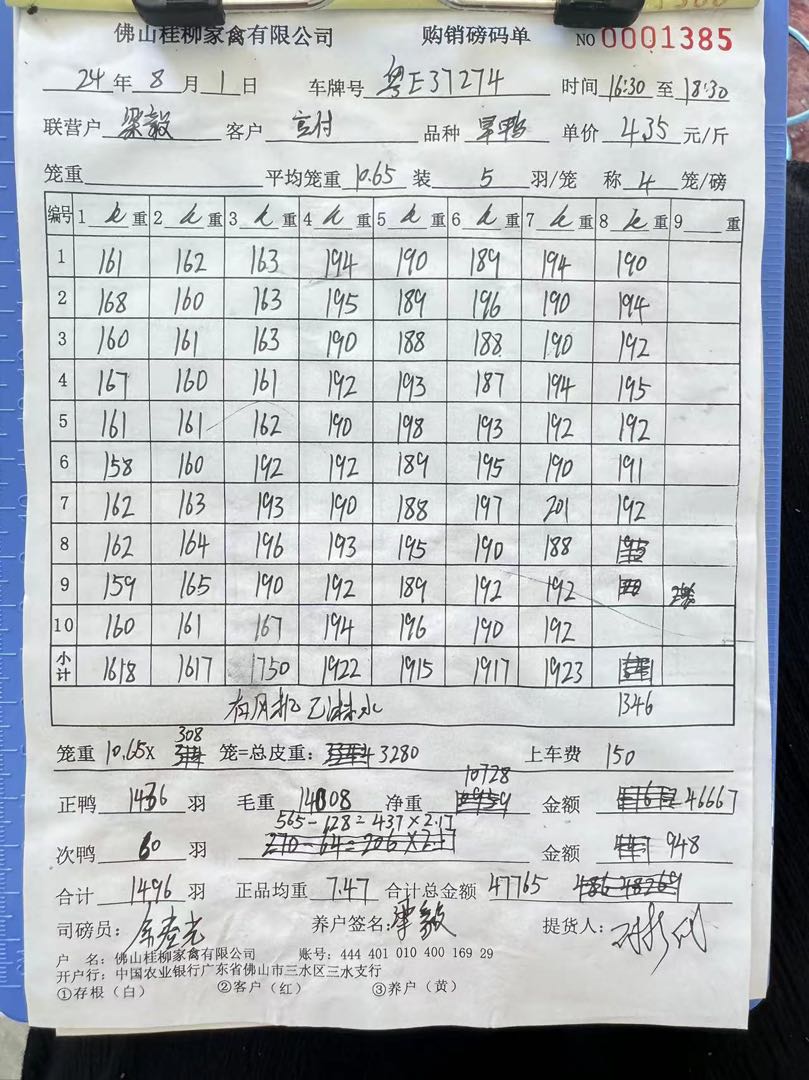 佛山桂柳家禽有限公司 购销磅码单 NO 0001385
24 年 8 月 1 日 车牌号 粤E37274 时间 16:30 至 18:30
联营户 梁毅 客户 品种 旱鸭 单价 4.35 元/斤
笼重 平均笼重 10.65 装 5 羽/笼 称 4 笼/磅
编号 1 重 2 重 3 重 4 重 5 重 6 重 7 重 8 重 9 重
1 161 162 163 194 190 189 194 190
2 168 160 163 195 189 196 190 194
3 160 161 163 190 188 188 190 192
4 167 160 161 192 193 187 194 195
5 161 161 162 190 198 193 192 192
6 158 160 192 192 189 195 190 191
7 162 163 193 190 188 197 201 192
8 162 164 196 193 195 190 188
9 159 165 190 192 189 192 192
10 160 161 167 194 196 190 192
小计 1618 1617 1750 1922 1915 1917 1923
有风机 淋水 1346
308
笼重 10.65X 笼=总皮重: 3280 上车费 150
10728
正鸭 1436 羽 毛重 14008 净重 金额 46667
565-128=437×2.17
次鸭 60 羽 金额 948
合计 1496 羽 正品均重 7.47 合计总金额 47765
司磅员: 养户签名: 梁毅 提货人:
户 名: 佛山桂柳家禽有限公司 账号: 444 401 010 400 169 29
开户行: 中国农业银行广东省佛山市三水区三水支行
①存根(白) ②客户(红) ③养户(黄)